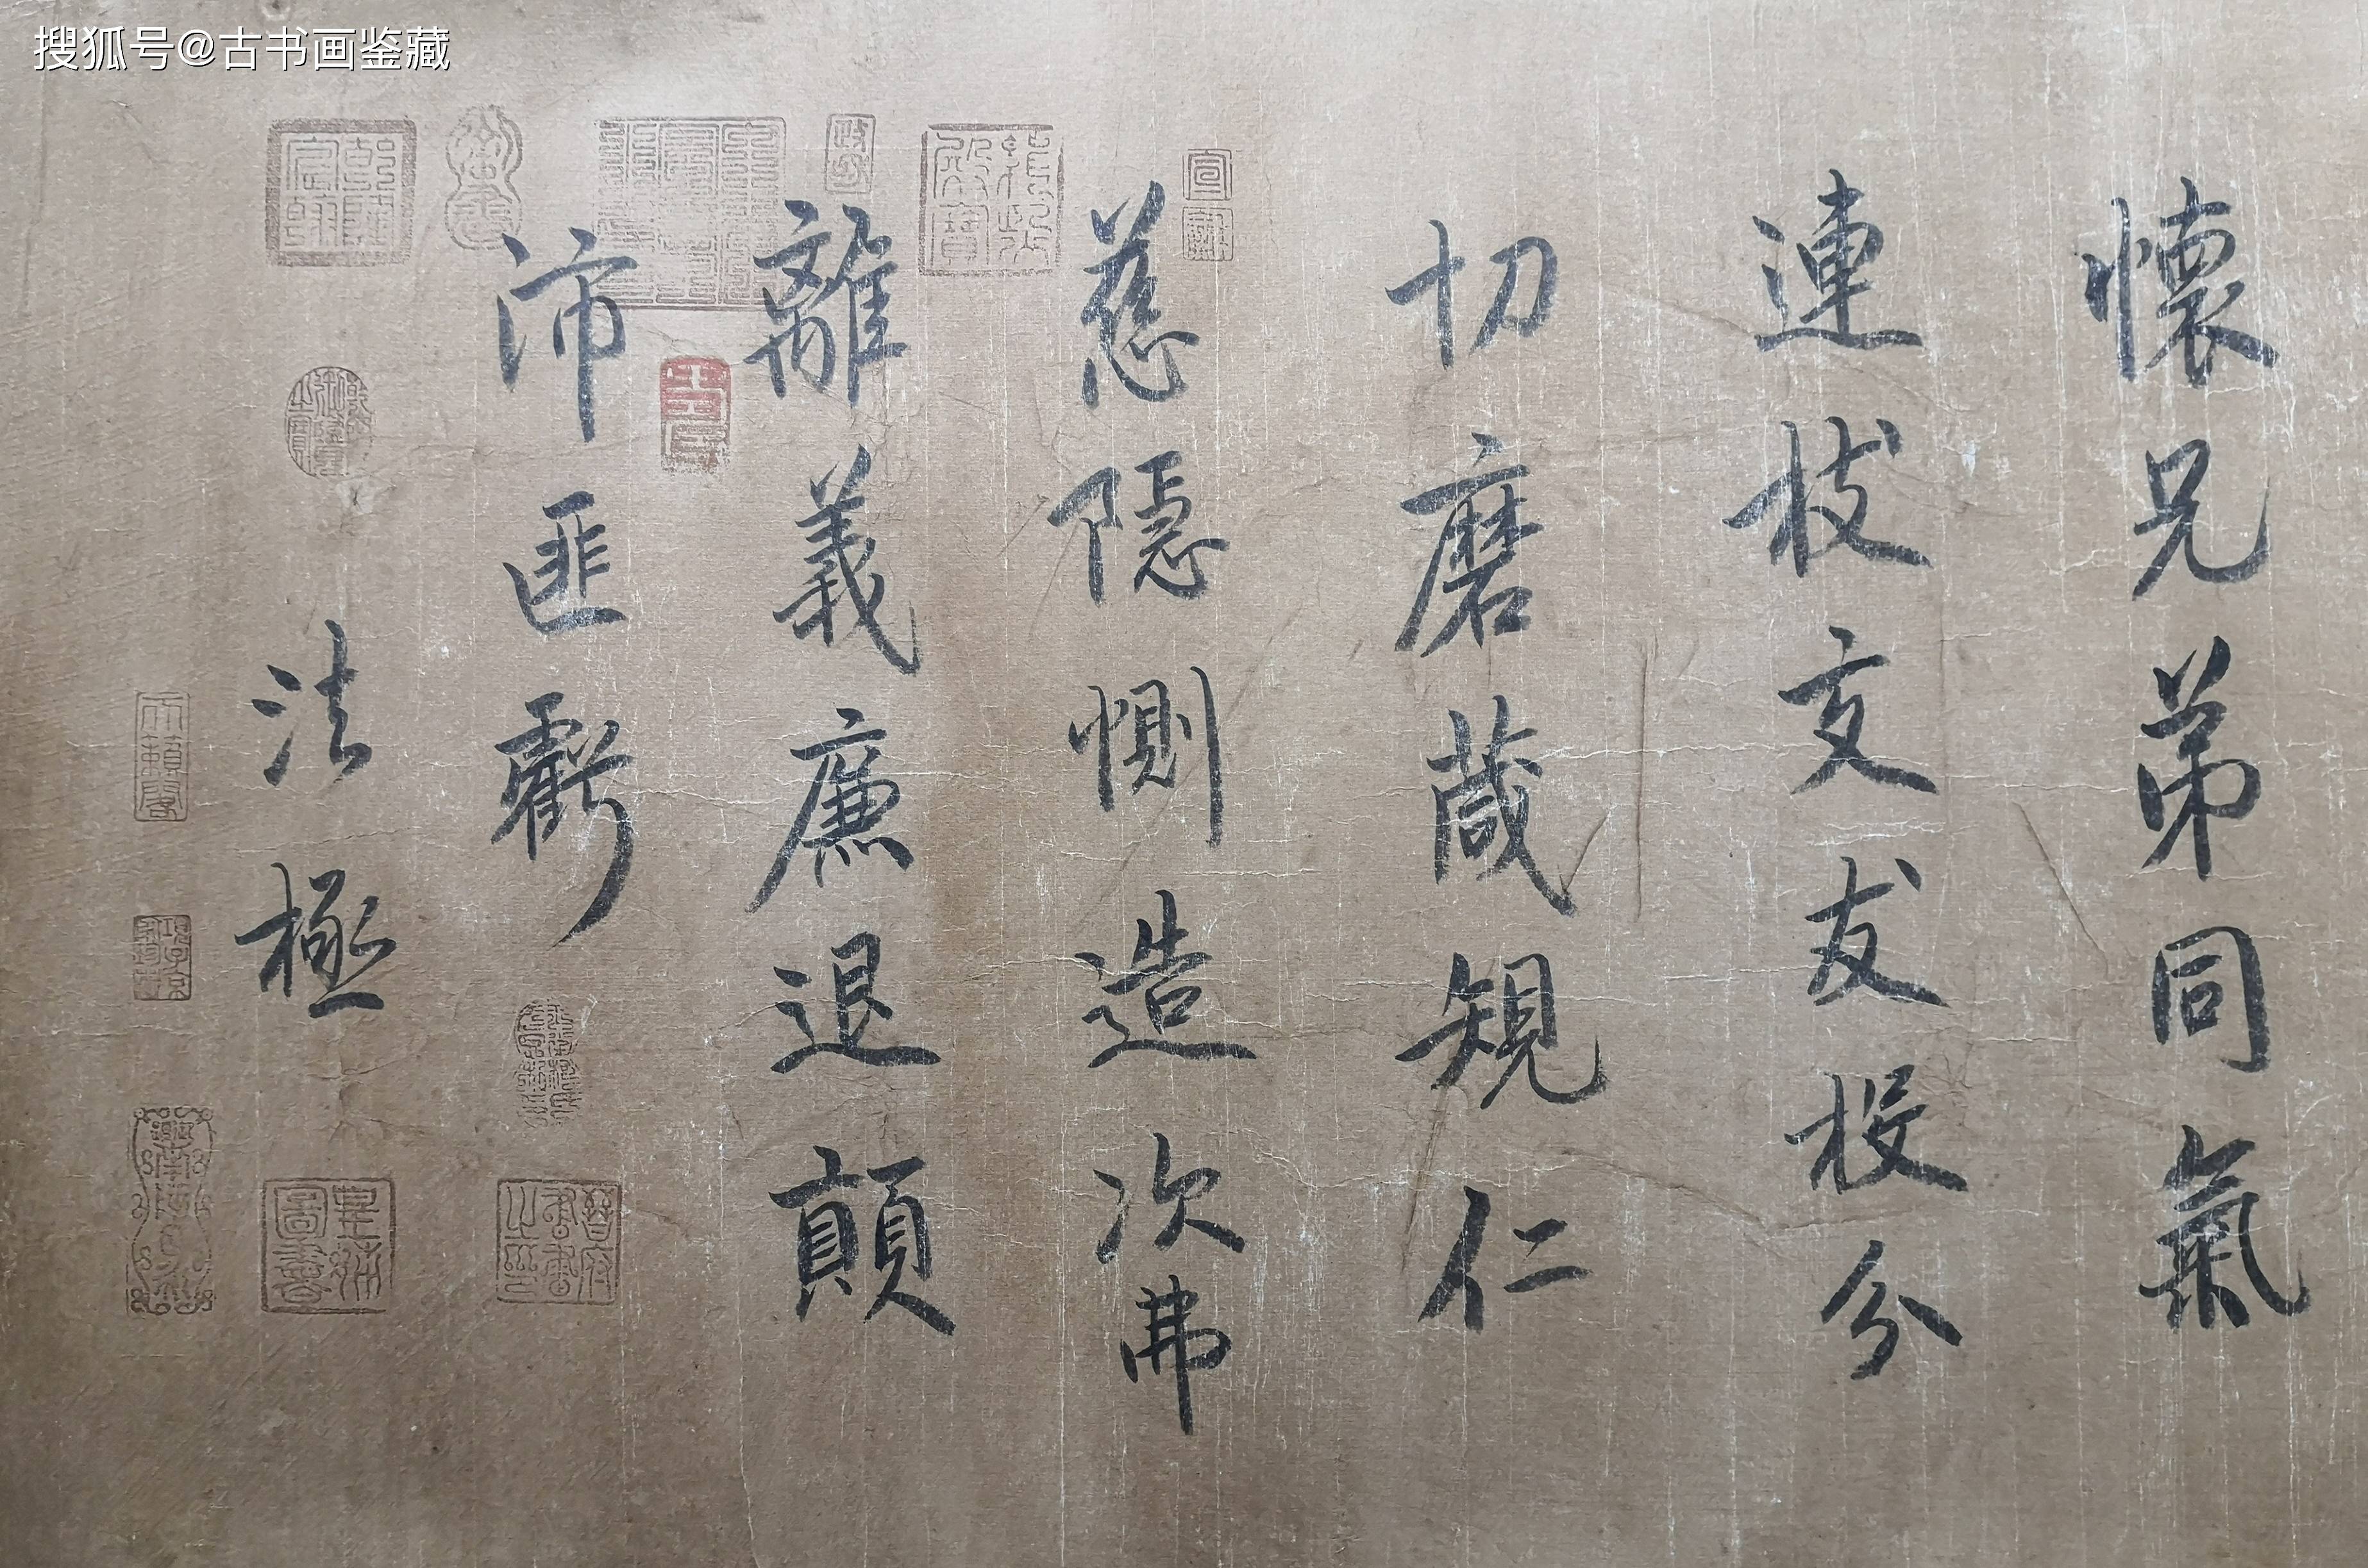 搜狐号@古书画鉴藏
懷兄弟同氣
連枝交友投分
切磨葴規仁
慈隱惻造次弗
離義廉退顛
沛匪虧
法極
宣龢